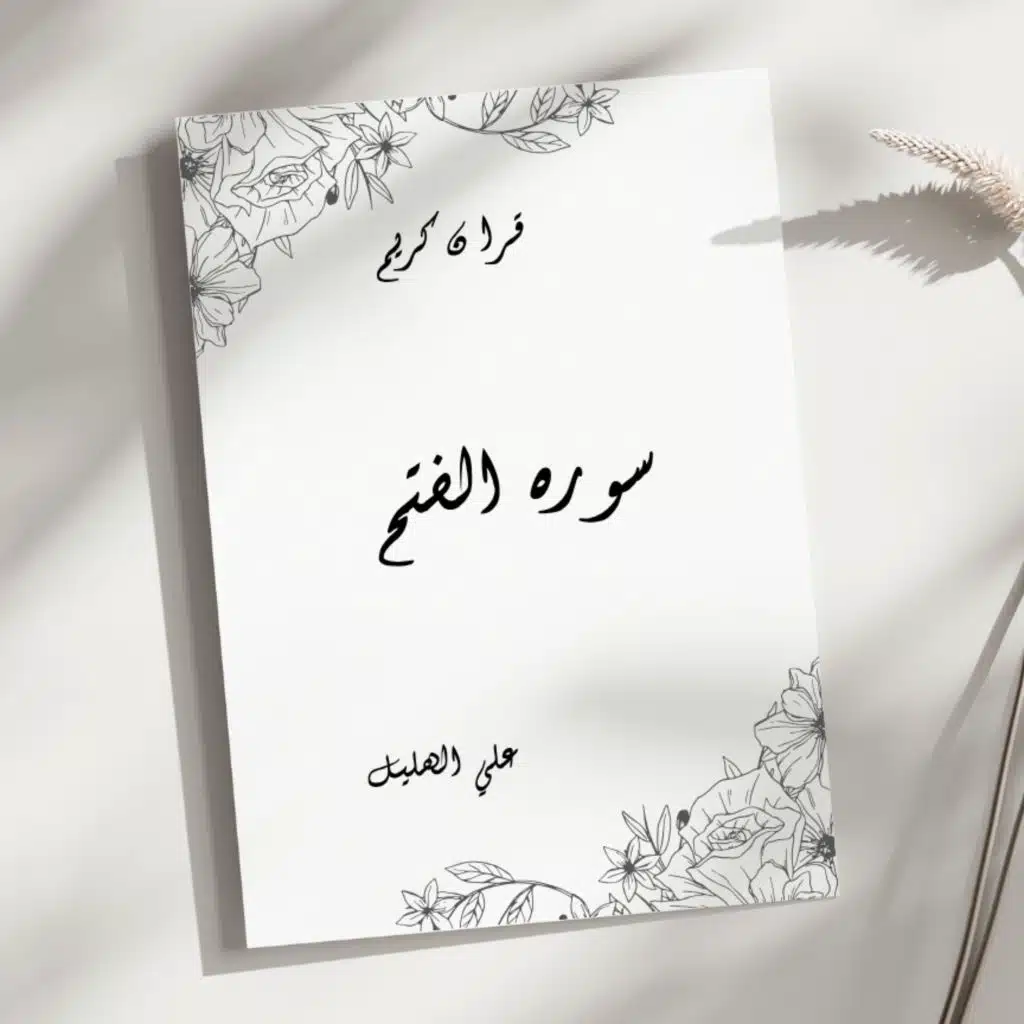 قران كريم
سوره الفتح
علي الهليل